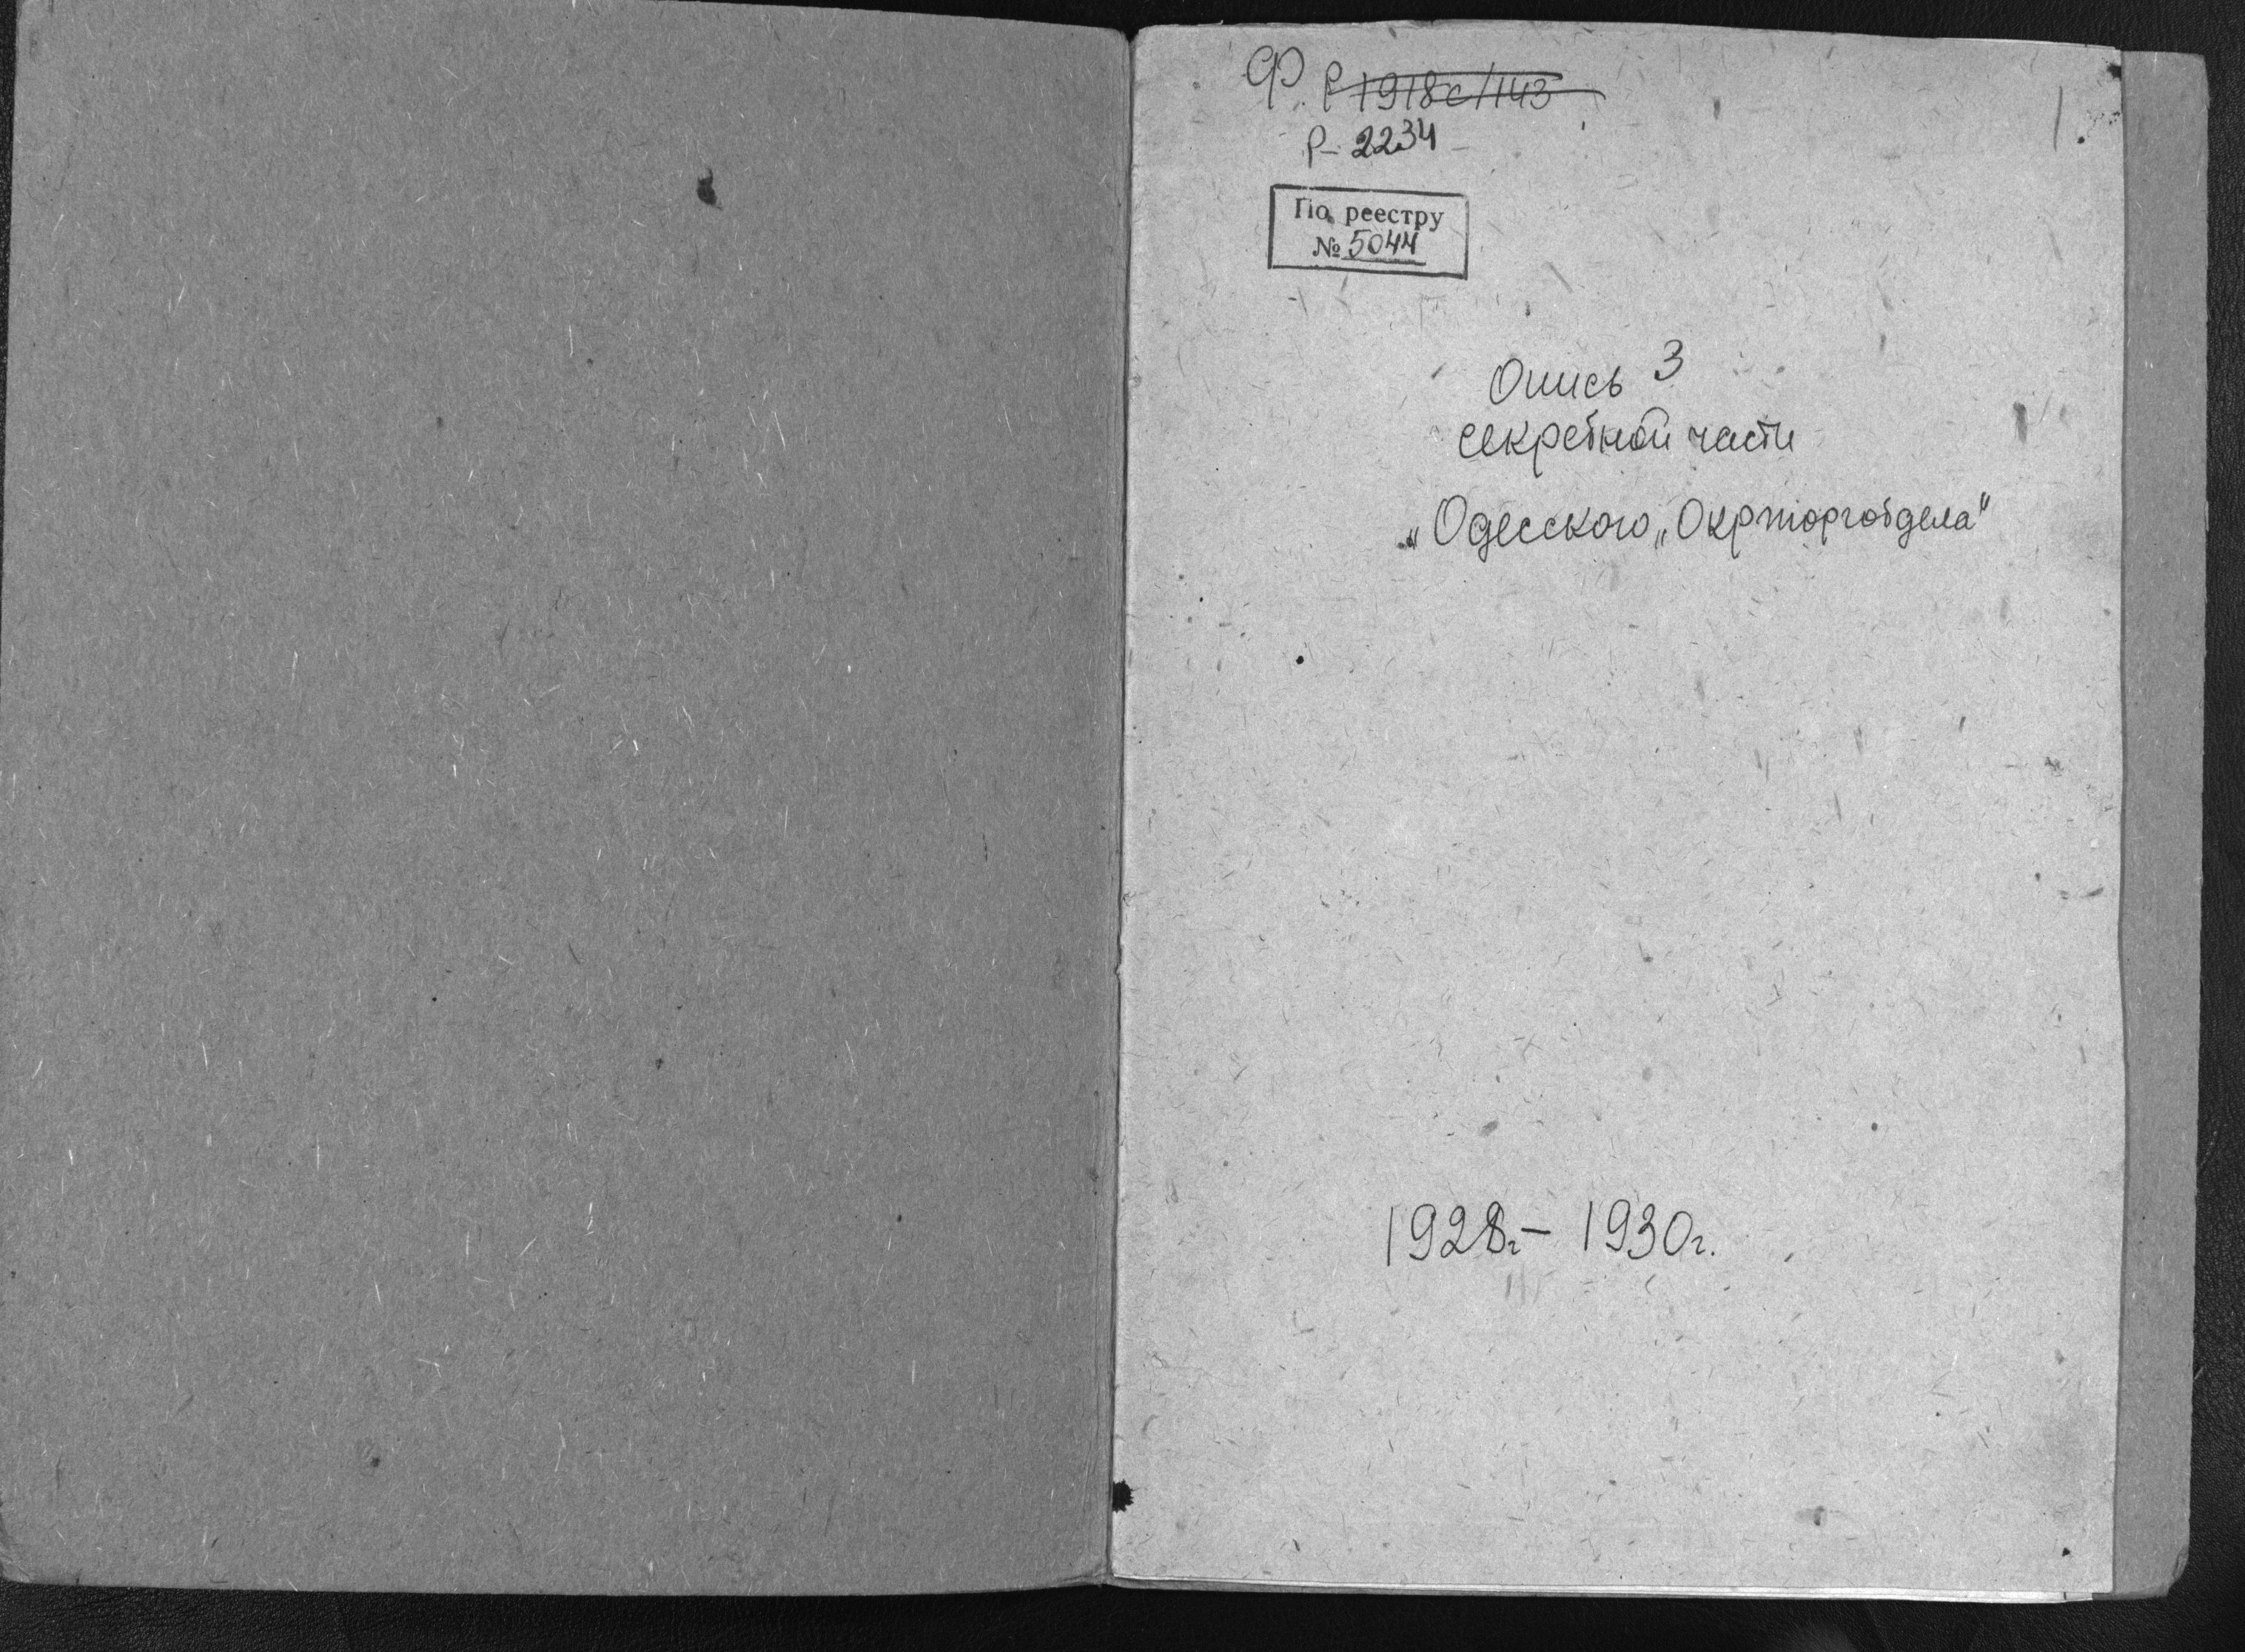 Ф. Р 1918с/143
1
Р-2234
По реестру
№ 5044
Опись 3
секретной части
„Одесского „Окрторготдела"
1928г.- 1930г.